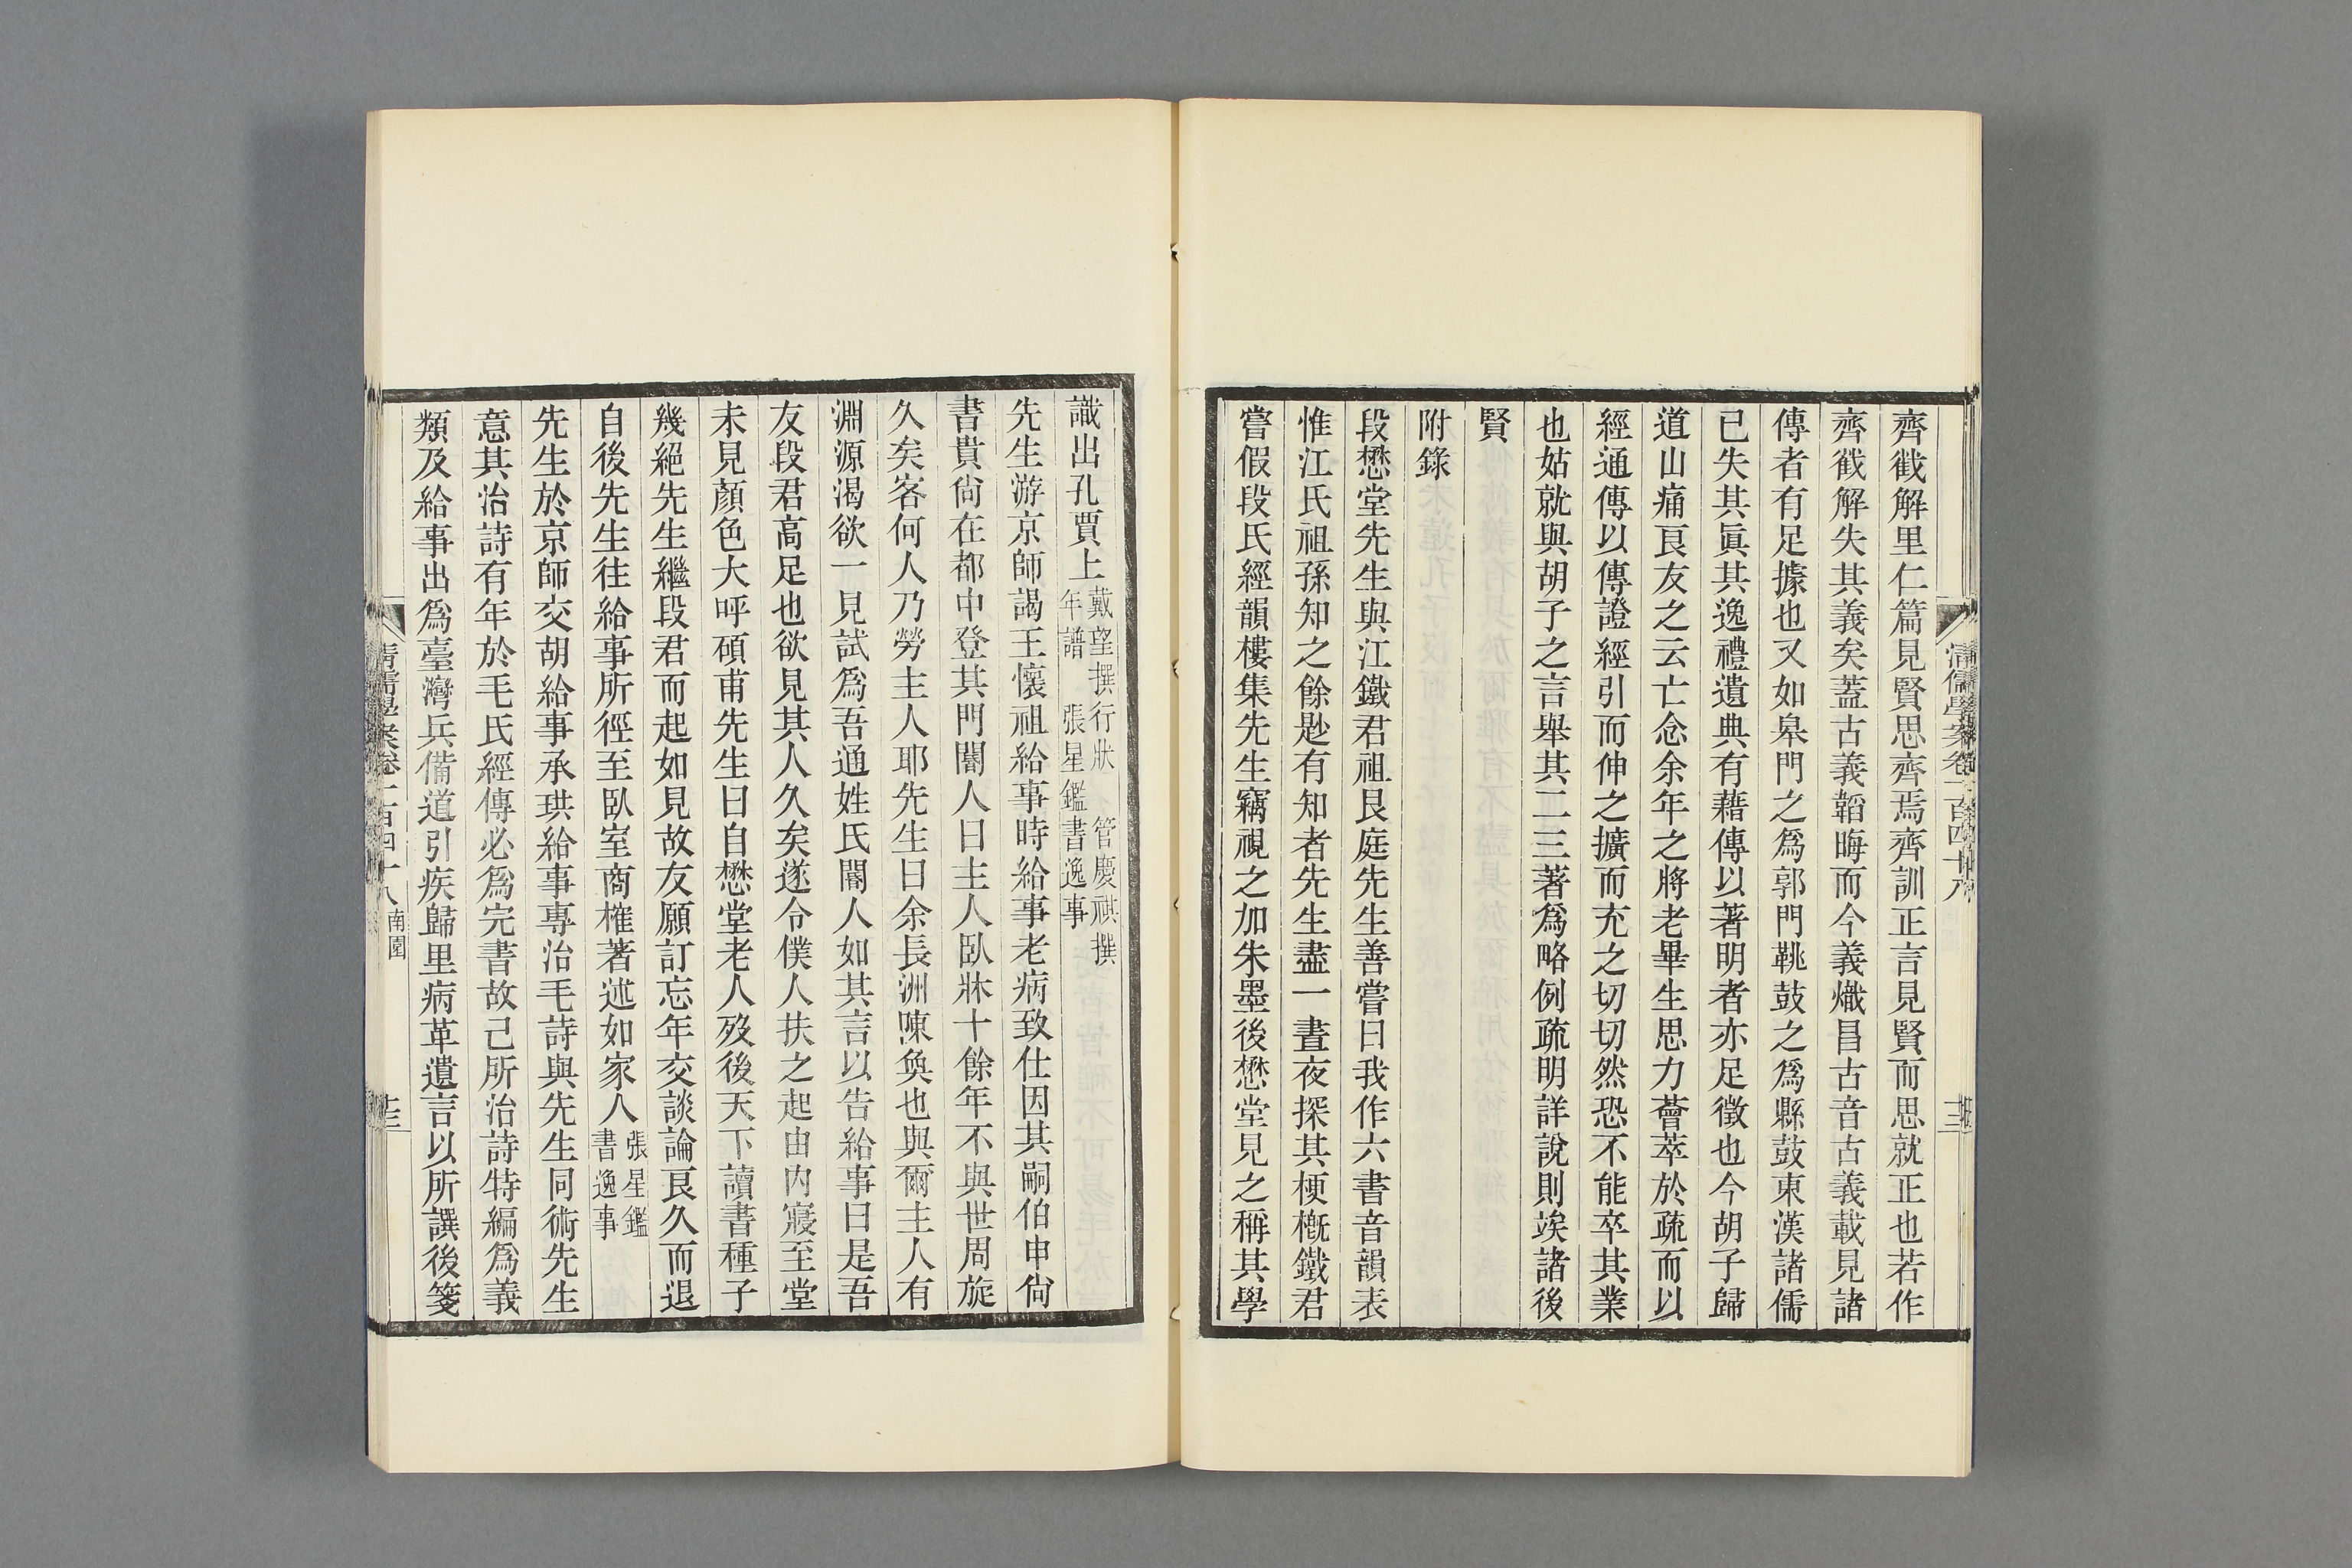 齊戳解里仁篇見賢思齊焉齊訓正言見賢而思就正也若作
齊戳解失其義矣蓋古義韜晦而今義熾昌古音古義載見諸
傳者有足據也又如皋門之爲郭門鞉鼓之爲縣鼓東漢諸儒
已失其眞其逸禮遺典有藉傳以著明者亦足徵也今胡子歸
道山痛良友之云亡念余年之將老畢生思力薈萃於疏而以
經通傳以傳證經引而伸之擴而充之切切然恐不能卒其業
也姑就與胡子之言舉其一二三著爲略例疏明詳說則竢諸後
賢
附錄
段懋堂先生與江鐵君祖艮庭先生善嘗曰我作六書音韻表
惟江氏祖孫知之餘尟有知者先生盡一晝夜探其梗槪鐵君
嘗假段氏經韻樓集先生竊視之加朱墨後懋堂見之稱其學
清儒學案卷一百四十八
識出孔賈上戴望撰行狀 管慶祺撰
年譜 張星鑑書逸事
先生游京師謁王懷祖給事時給事老病致仕因其嗣伯申尙
書貴尙在都中登其門閽人曰主人臥牀十餘年不與世周旋
久矣客何人乃勞主人耶先生曰余長洲陳奐也與爾主人有
淵源渴欲一見試爲吾通姓氏閽人如其言以告給事曰是吾
友段君高足也欲見其人久矣遂令僕人扶之起由內寢至堂
未見顏色大呼碩甫先生曰自懋堂老人歿後天下讀書種子
幾絕先生繼段君而起如見故友願訂忘年交談論良久而退
自後先生往給事所徑至臥室商榷著述如家人張星鑑
書逸事
先生於京師交胡給事承珙給事專治毛詩與先生同術先生
意其治詩有年於毛氏經傳必爲完書故己所治詩特編爲義
類及給事出爲臺灣兵備道引疾歸里病革遺言以所譔後箋
清儒學案卷一百四十八 南園